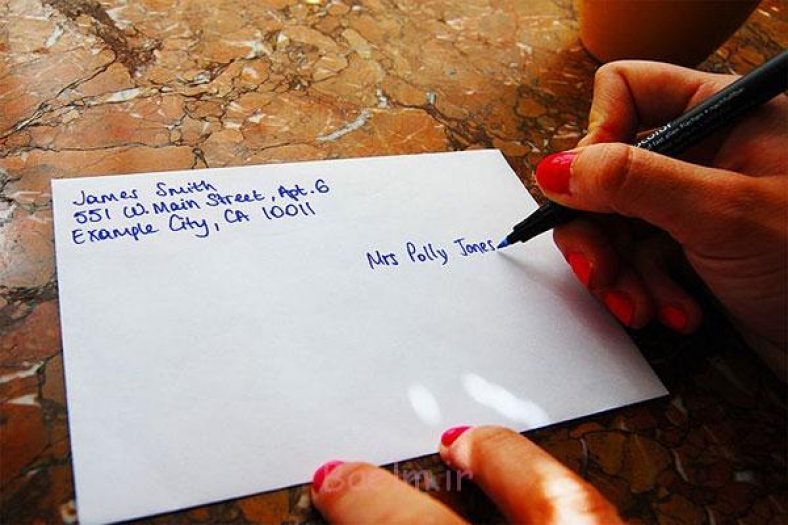 James Smith
551 W. Main Street, Apt. 6
Example City, CA 10011
Mrs Polly Jones